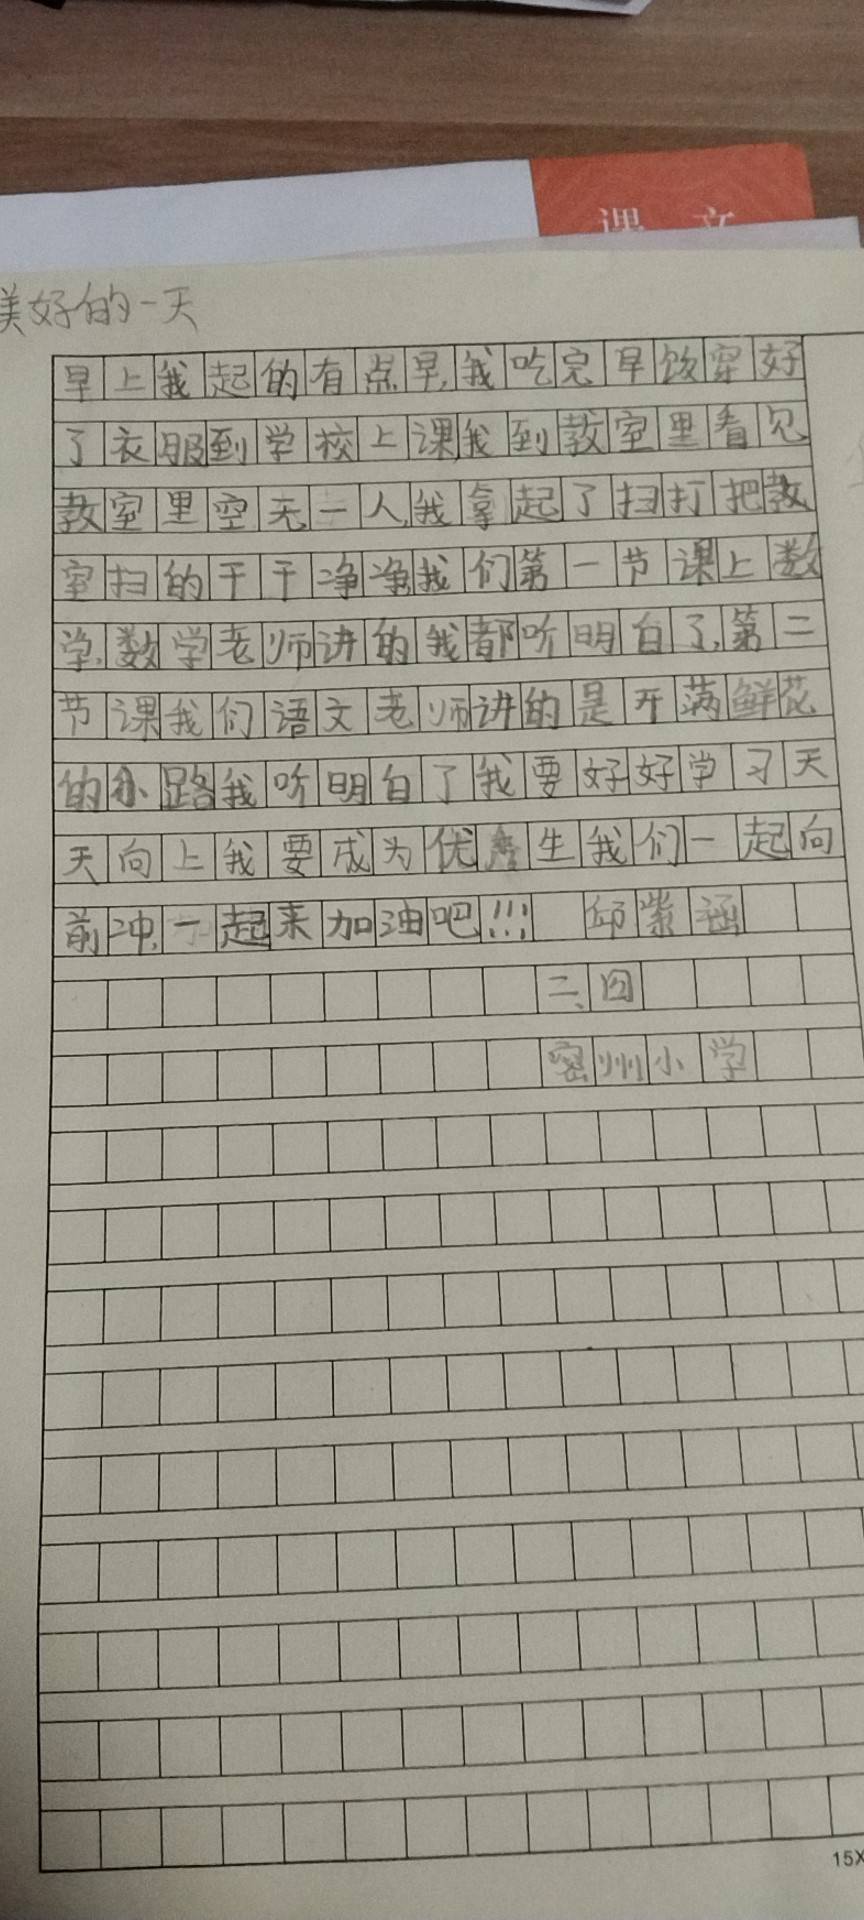 课文
美好的一天
早上我起的有点早,我吃完早饭穿好
了衣服到学校上课,我到教室里看见
教室里空无一人,我拿起了扫打把教
室扫的干干净净,我们第一节课上数
学,数学老师讲的我都听明白了,第二
节课我们语文老师讲的是开满鲜花
的小路我听明白了我要好好学习天
天向上我要成为优秀生我们一起向
前冲,一起来加油吧!!! 邱紫涵
二、四
密州小学
15X